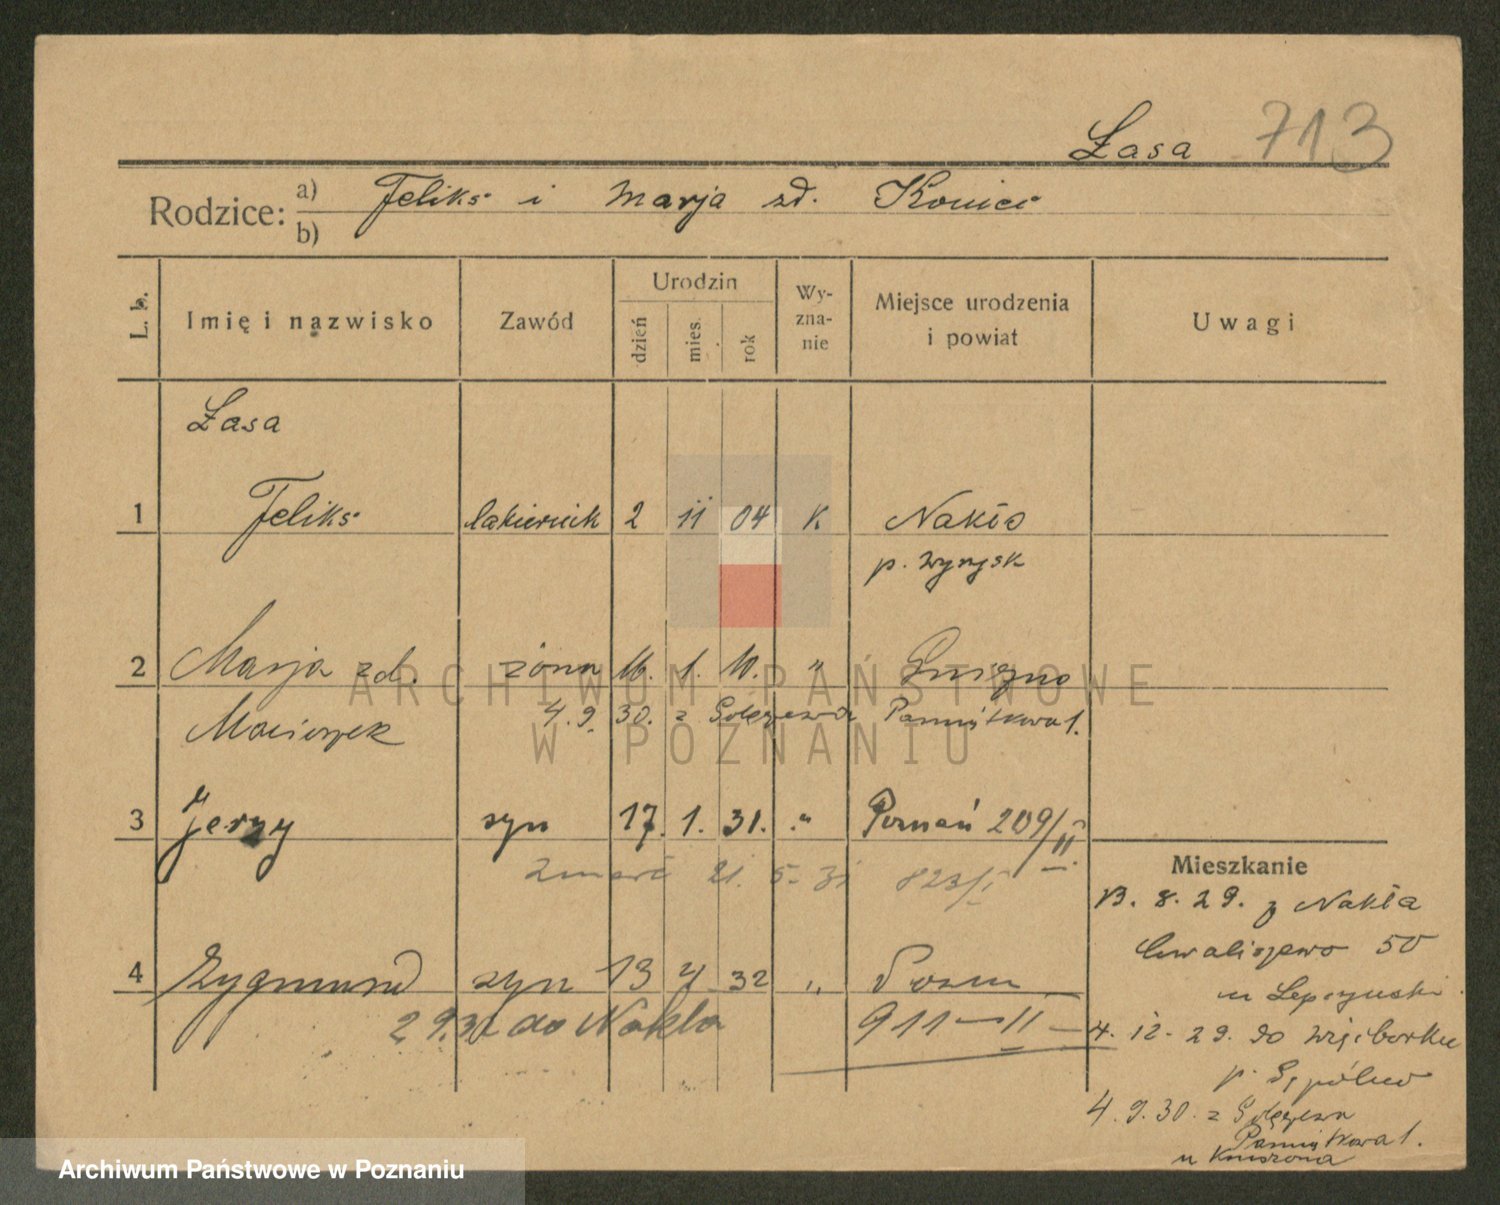 Łasa 713
Rodzice: a) Feliks i Marja zd.
b)
L. b.
Imię i nazwisko
Zawód
Urodzin
dzień mies. rok
Wy-
zna-
nie
Miejsce urodzenia
i powiat
Uwagi
Łasa
1 Feliks lakiernik 2 11 04 K Nakło
p. Wyrzysk
2 Marja zd. żona 16. 1. 10. "
ARCHIWUM PAŃSTWOWE
4.9.30. z Pamiątkowa 1.
W POZNANIU
3 Jerzy syn 17. 1. 31. " Poznań 209/II.
zmarł 21. 5. 31 823/I
Mieszkanie
13. 8. 29. z Nakła
Chwaliszewo 50
4 Zygmund syn 13 32 "
u Lepczyński
do Nakła 911-II-
4. 12. 29. do Więcborku
p. Sępólno
4. 9. 30. z
Pamiątkowa 1.
u
Archiwum Państwowe w Poznaniu